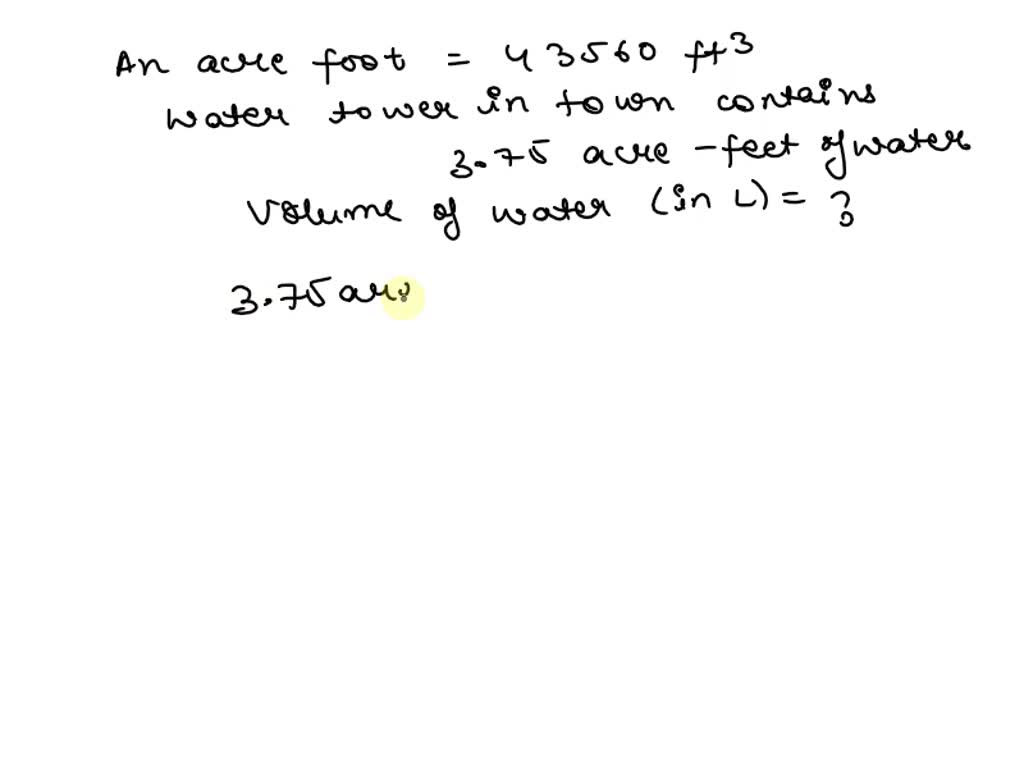 An acre foot = 43560 ft³
Water tower in town contains
3.75 acre-feet of water
Volume of water (in L) = ?
3.75 acr